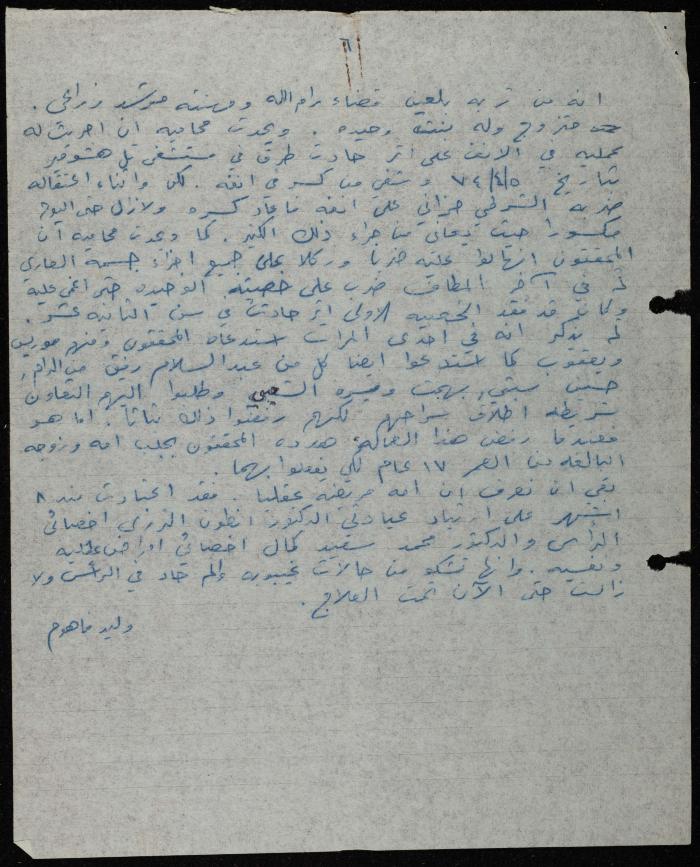 ٦
انه من قرية بلعين قضاء رام الله ومهنته مرشد زراعي .
متزوج وله بنت وحيده . ويحدث محاميه ان اجريت له
عمليه في الانف على اثر حادث طرق في مستشفى تل هشومير
بتاريخ ٧٤/٤/٥ وشفي من كسر في انفه . لكن واثناء اعتقاله
ضربه الشرطي على انفه فاعاد كسره ولازال حتى اليوم
مكسورا حيث يعاني من جراء ذلك الكثير . كما ويحدث محاميه ان
المحققون انهالوا عليه ضربا وركلا على جميع اجزاء جسمه العاري
ثم في آخر المطاف ضرب على خصيته الوحيده حتى اغمي عليه
وكان قد فقد الخصيه الاولى اثر حادث في سن الثانيه عشر .
ثم يذكر انه في احدى المرات استدعاه المحققون ومنهم موريس
ويعقوب كما استدعوا ايضا كل من عبد السلام رفيق من الرام ,
حسين سبتي , بهجت وميسره الشعيبي وطلبوا اليهم التعاون
شريطة اطلاق سراحهم لكنهم رفضوا ذلك بتاتا . اما هو
فعندما رفض هذا هدده المحققون بجلب امه وزوجه
البالغه من العمر ١٧ عام لكي يفعلوا بهما .
بقي ان نعرف ان امه مريضه عقليا . فقد اعتادت منذ ٨
اشهر على ارتياد عيادتي الدكتور انطون الترزي اخصائي
الرأس والدكتور محمد سعيد كمال اخصائي امراض عقليه
ونفسيه . وانها تشكو من حالات غيبوبه والم حاد في الرأس ولا
زالت حتى الآن تحت العلاج .
وليد فاهوم